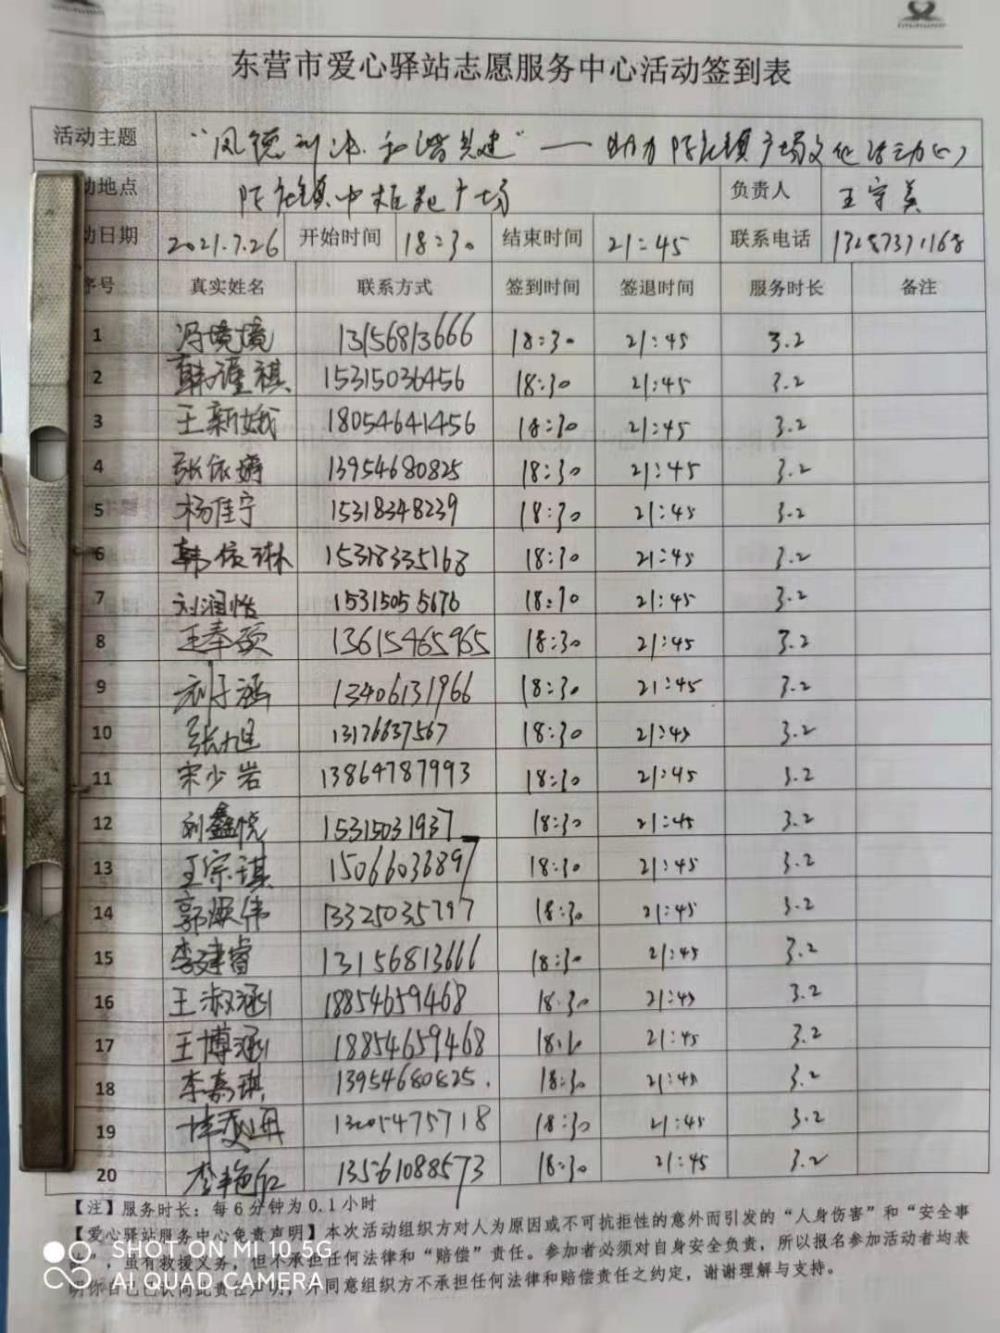 东营市爱心驿站志愿服务中心活动签到表
活动主题 助力陈庄镇广场文化活动(一)
动地点 陈庄镇中 广场 负责人 王守美
动日期 2021.7.26 开始时间 18:30 结束时间 21:45 联系电话
序号 真实姓名 联系方式 签到时间 签退时间 服务时长 备注
1 冯境境 13156813666 18:30 21:45 3.2
2 韩谨祺 15315036456 18:30 21:45 3.2
3 王新娥 18054641456 18:30 21:45 3.2
4 张依婷 13954680825 18:30 21:45 3.2
5 杨佳宁 15318348239 18:30 21:45 3.2
6 韩依琳 15318335168 18:30 21:45 3.2
7 刘润怡 15315055676 18:30 21:45 3.2
8 王奉硕 13615465965 18:30 21:45 3.2
9 刘子涵 13406131966 18:30 21:45 3.2
10 张旭 13176637567 18:30 21:45 3.2
11 宋少岩 13864787993 18:30 21:45 3.2
12 刘鑫悦 15315031937 18:30 21:45 3.2
13 王宗琪 15066036897 18:30 21:45 3.2
14 郭焕伟 13325035797 18:30 21:45 3.2
15 李建睿 13156813666 18:30 21:45 3.2
16 王淑涵 18854659468 18:30 21:45 3.2
17 王博涵 18854659468 18:30 21:45 3.2
18 李嘉琪 13954680825. 18:30 21:45 3.2
19 13205475718 18:30 21:45 3.2
20 李艳红 13561088573 18:30 21:45 3.2
【注】服务时长：每6分钟为0.1小时
【爱心驿站服务中心免责声明】本次活动组织方对人为原因或不可抗拒性的意外而引发的“人身伤害”和“安全事
，虽有救援义务，但不承担任何法律和“赔偿”责任。参加者必须对自身安全负责，所以报名参加活动者均表
明你自己已认同此责任声明，并同意组织方不承担任何法律和赔偿责任之约定，谢谢理解与支持。
SHOT ON MI 10 5G
AI QUAD CAMERA